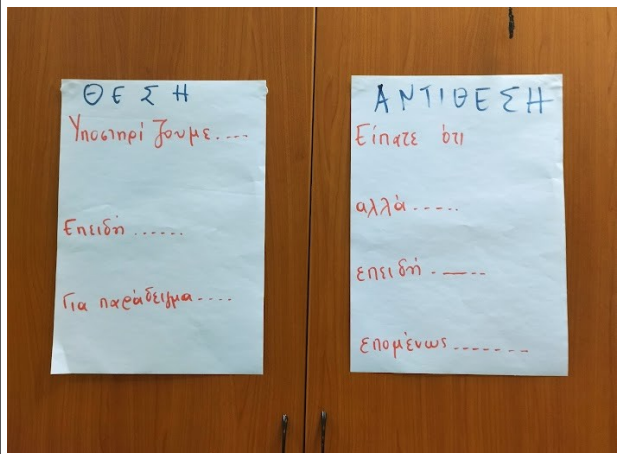 ΘΕΣΗ
Υποστηρίζουμε....
Επειδή ......
Για παράδειγμα....
ΑΝΤΙΘΕΣΗ
Είπατε ότι
αλλά.....
επειδή .——..
επομένως.......